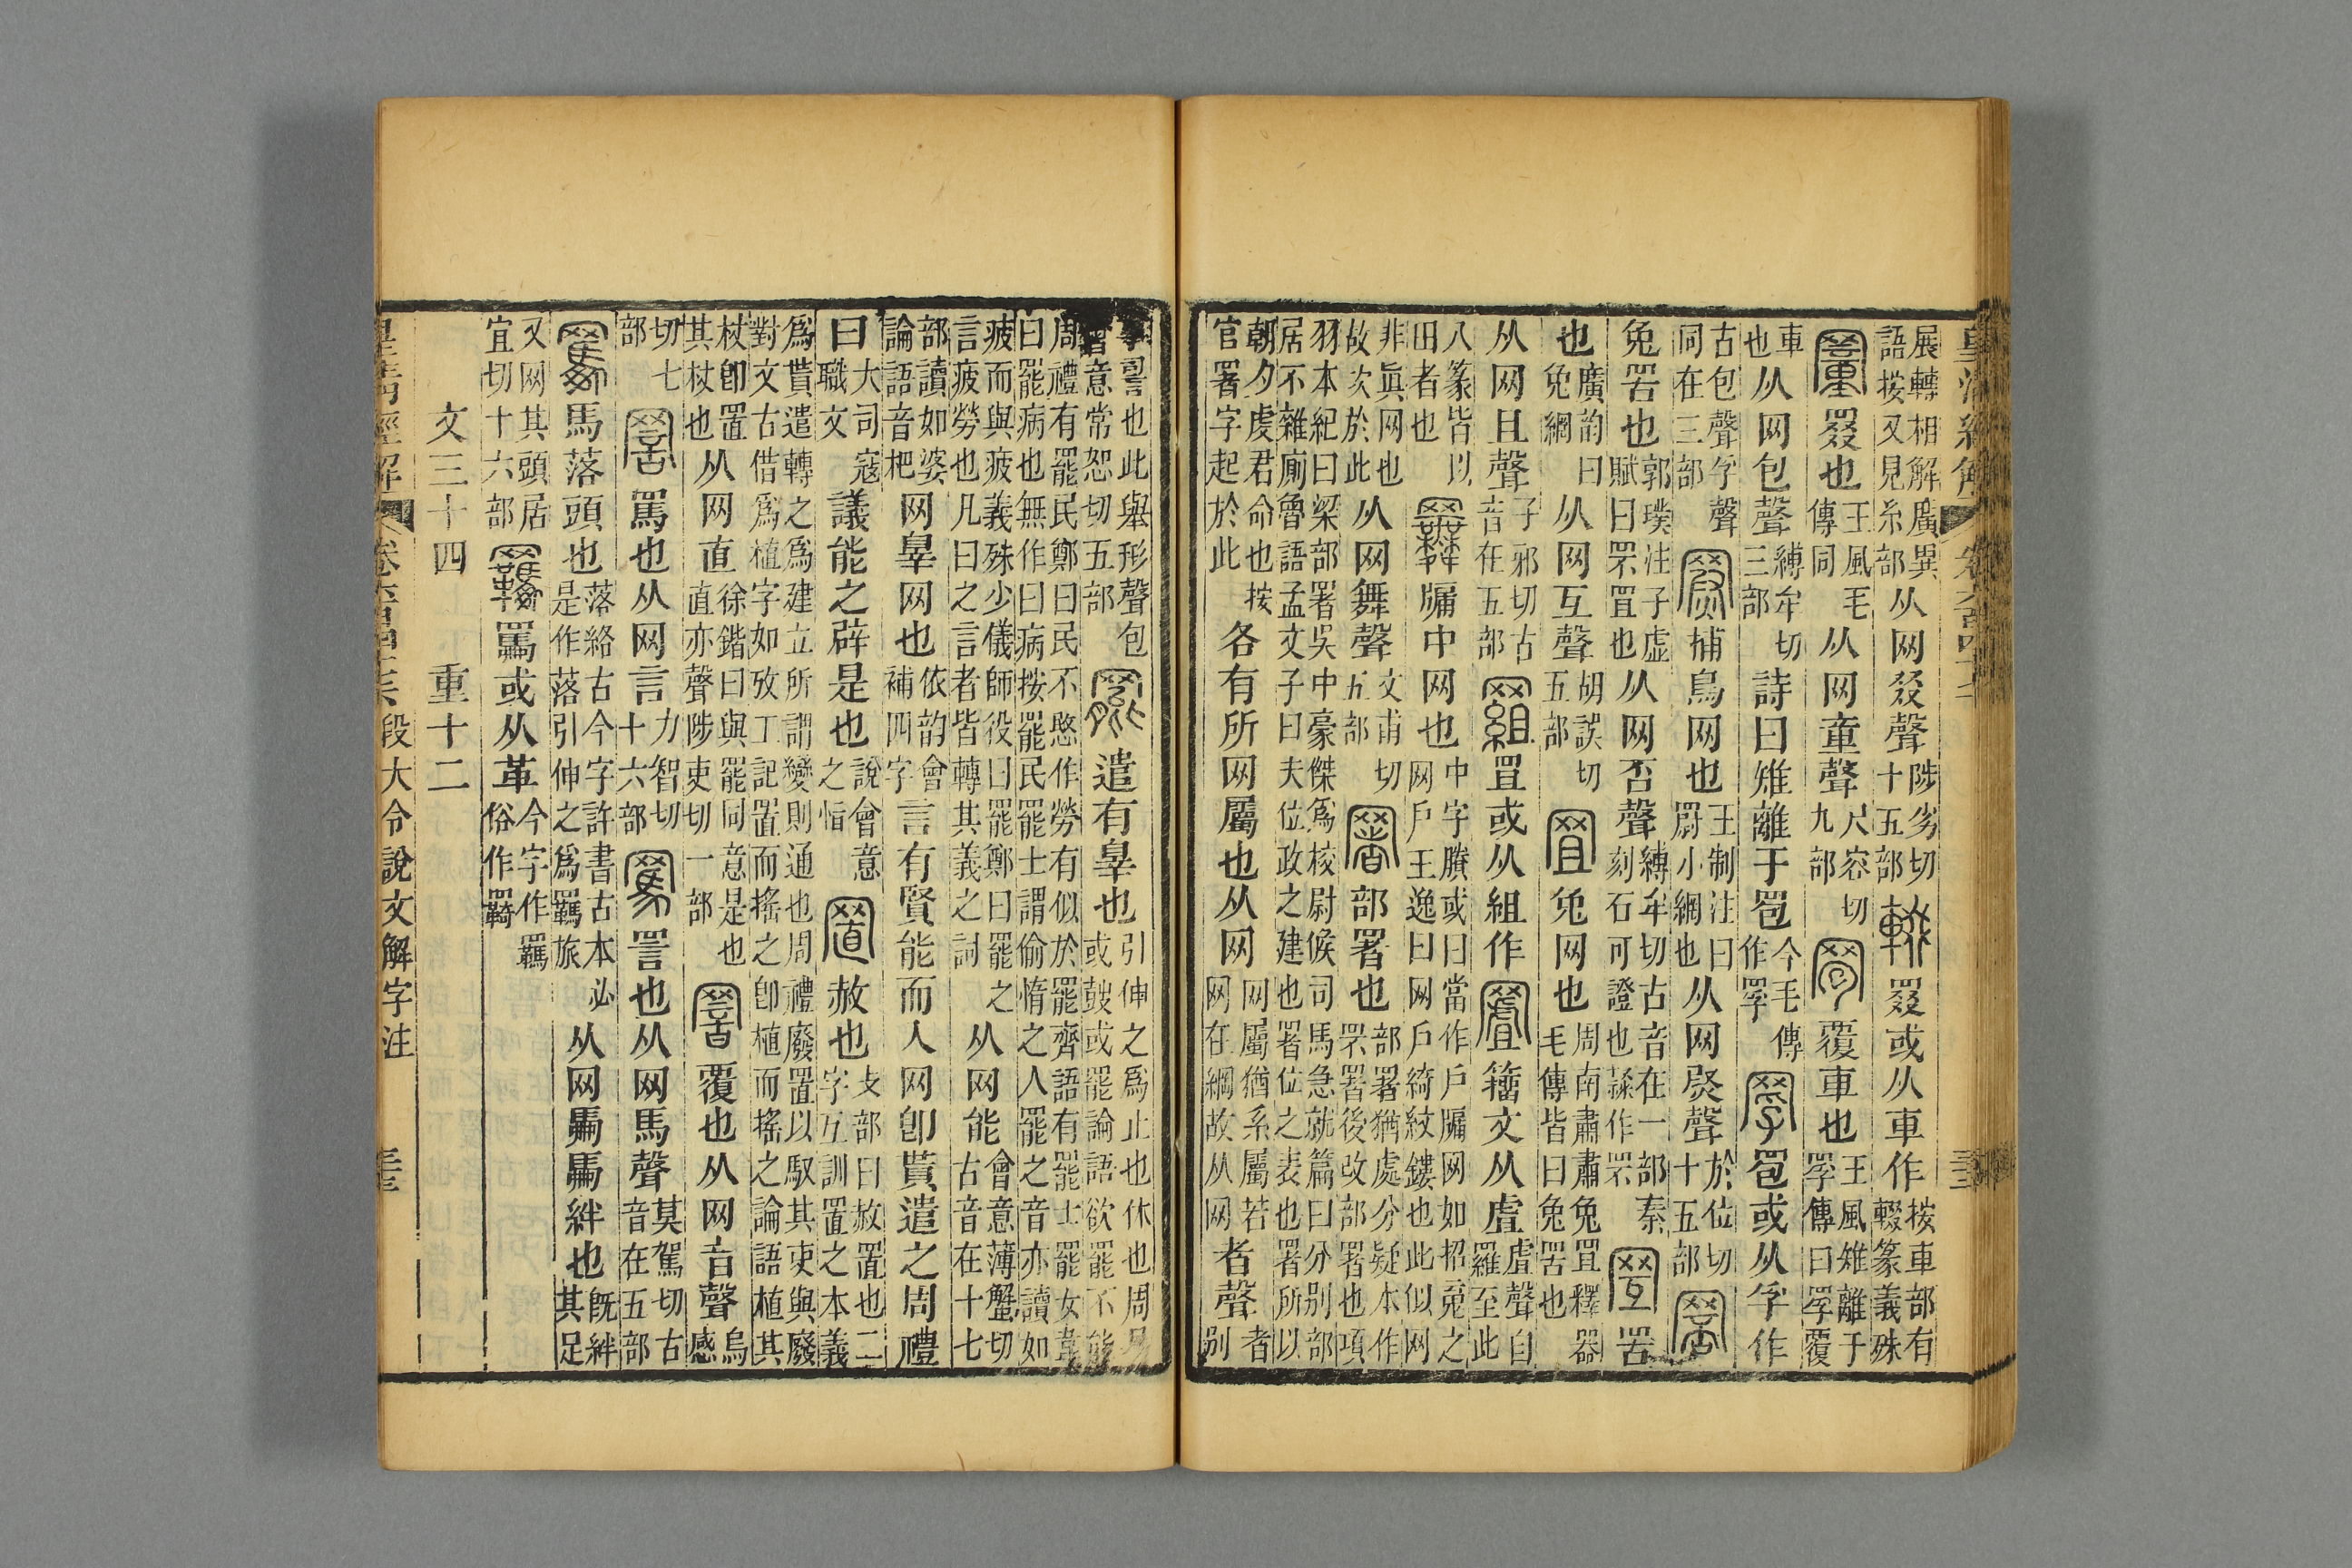 皇清經解
展轉相解廣異
語按又見糸部从网叕聲陟劣切十五部輟罬或从車作按車部有輟篆義殊
罿罬也王風毛傳同从网童聲尺容切九部䍖覆車也王風雉離于罦傳曰罦覆
車也从网包聲縛牟切三部詩曰雉離于䍖今毛傳作罦罦䍖或从孚作
古包聲孚聲同在三部𦌭捕鳥网也王制注曰罻小網也从网𤈦聲於位切十五部罘
兔罟也郭璞注子虛賦曰罘罝也从网否聲縛牟切古音在一部秦刻石可證也𦋐作罘罟罟
也廣韵曰兔網从网互聲胡誤切五部罝兔网也周南肅肅兔罝釋器毛傳皆曰兔罟也
从网且聲子邪切古音在五部罝或从組作籒文从虘虘聲自羅至此
八篆皆以田者也牖中网也中字賸或曰當作戶牖网如招䰟之网戶王逸曰网戶綺紋鏤也此似网
非眞网也故次於此从网舞聲文甫切五部署部署也部署猶處分疑本作罘署後改部署也項
羽本紀曰梁部署吳中豪傑爲校尉候司馬急就篇曰分別部
居不雜廁魯語孟文子曰夫位政之建也署位之表也署所以
朝夕虔君命也按官署字起於此各有所网屬也从网网屬猶系屬若网在綱故从网者聲者別
也此舉形聲包意常恕切五部罷遣有辠也引伸之爲止也休也周易或鼓或罷論語欲罷不能
周禮有罷民鄭曰民不愍作勞有似於罷齊語有罷士罷女韋
曰罷病也無作曰病按罷民罷士謂偷惰之人罷之音亦讀如
疲而與疲義殊少儀師役曰罷鄭曰罷之言疲勞也凡曰之言者皆轉其義之詞从网能會意薄蟹切古音在十七
部讀如婆論語音杷网辠网也依韵會補四字言有賢能而入网卽貰遣之周禮
曰大司寇職文議能之辟是也說會意之恉置赦也攴部曰赦置也二字互訓置之本義
爲貰遣轉之爲建立所謂變則通也周禮廢置以馭其吏與廢
對文古借爲植字如攷工記置而搖之卽植而搖之論語植其
杖卽置其杖也从网直徐鍇曰與罷同意是也直亦聲陟吏切一部署覆也从网音聲烏感
切七部詈罵也从网言力智切十六部罵詈也从网馬聲莫駕切古音在五部
馬落頭也落絡古今字許書古本必是作落引伸之爲羈旅从网馽馽絆也旣絆其足
又网其頭居宜切十六部羈䍜或从革今字作羈俗作羇
文三十四 重十二
皇清經解 段大令說文解字注